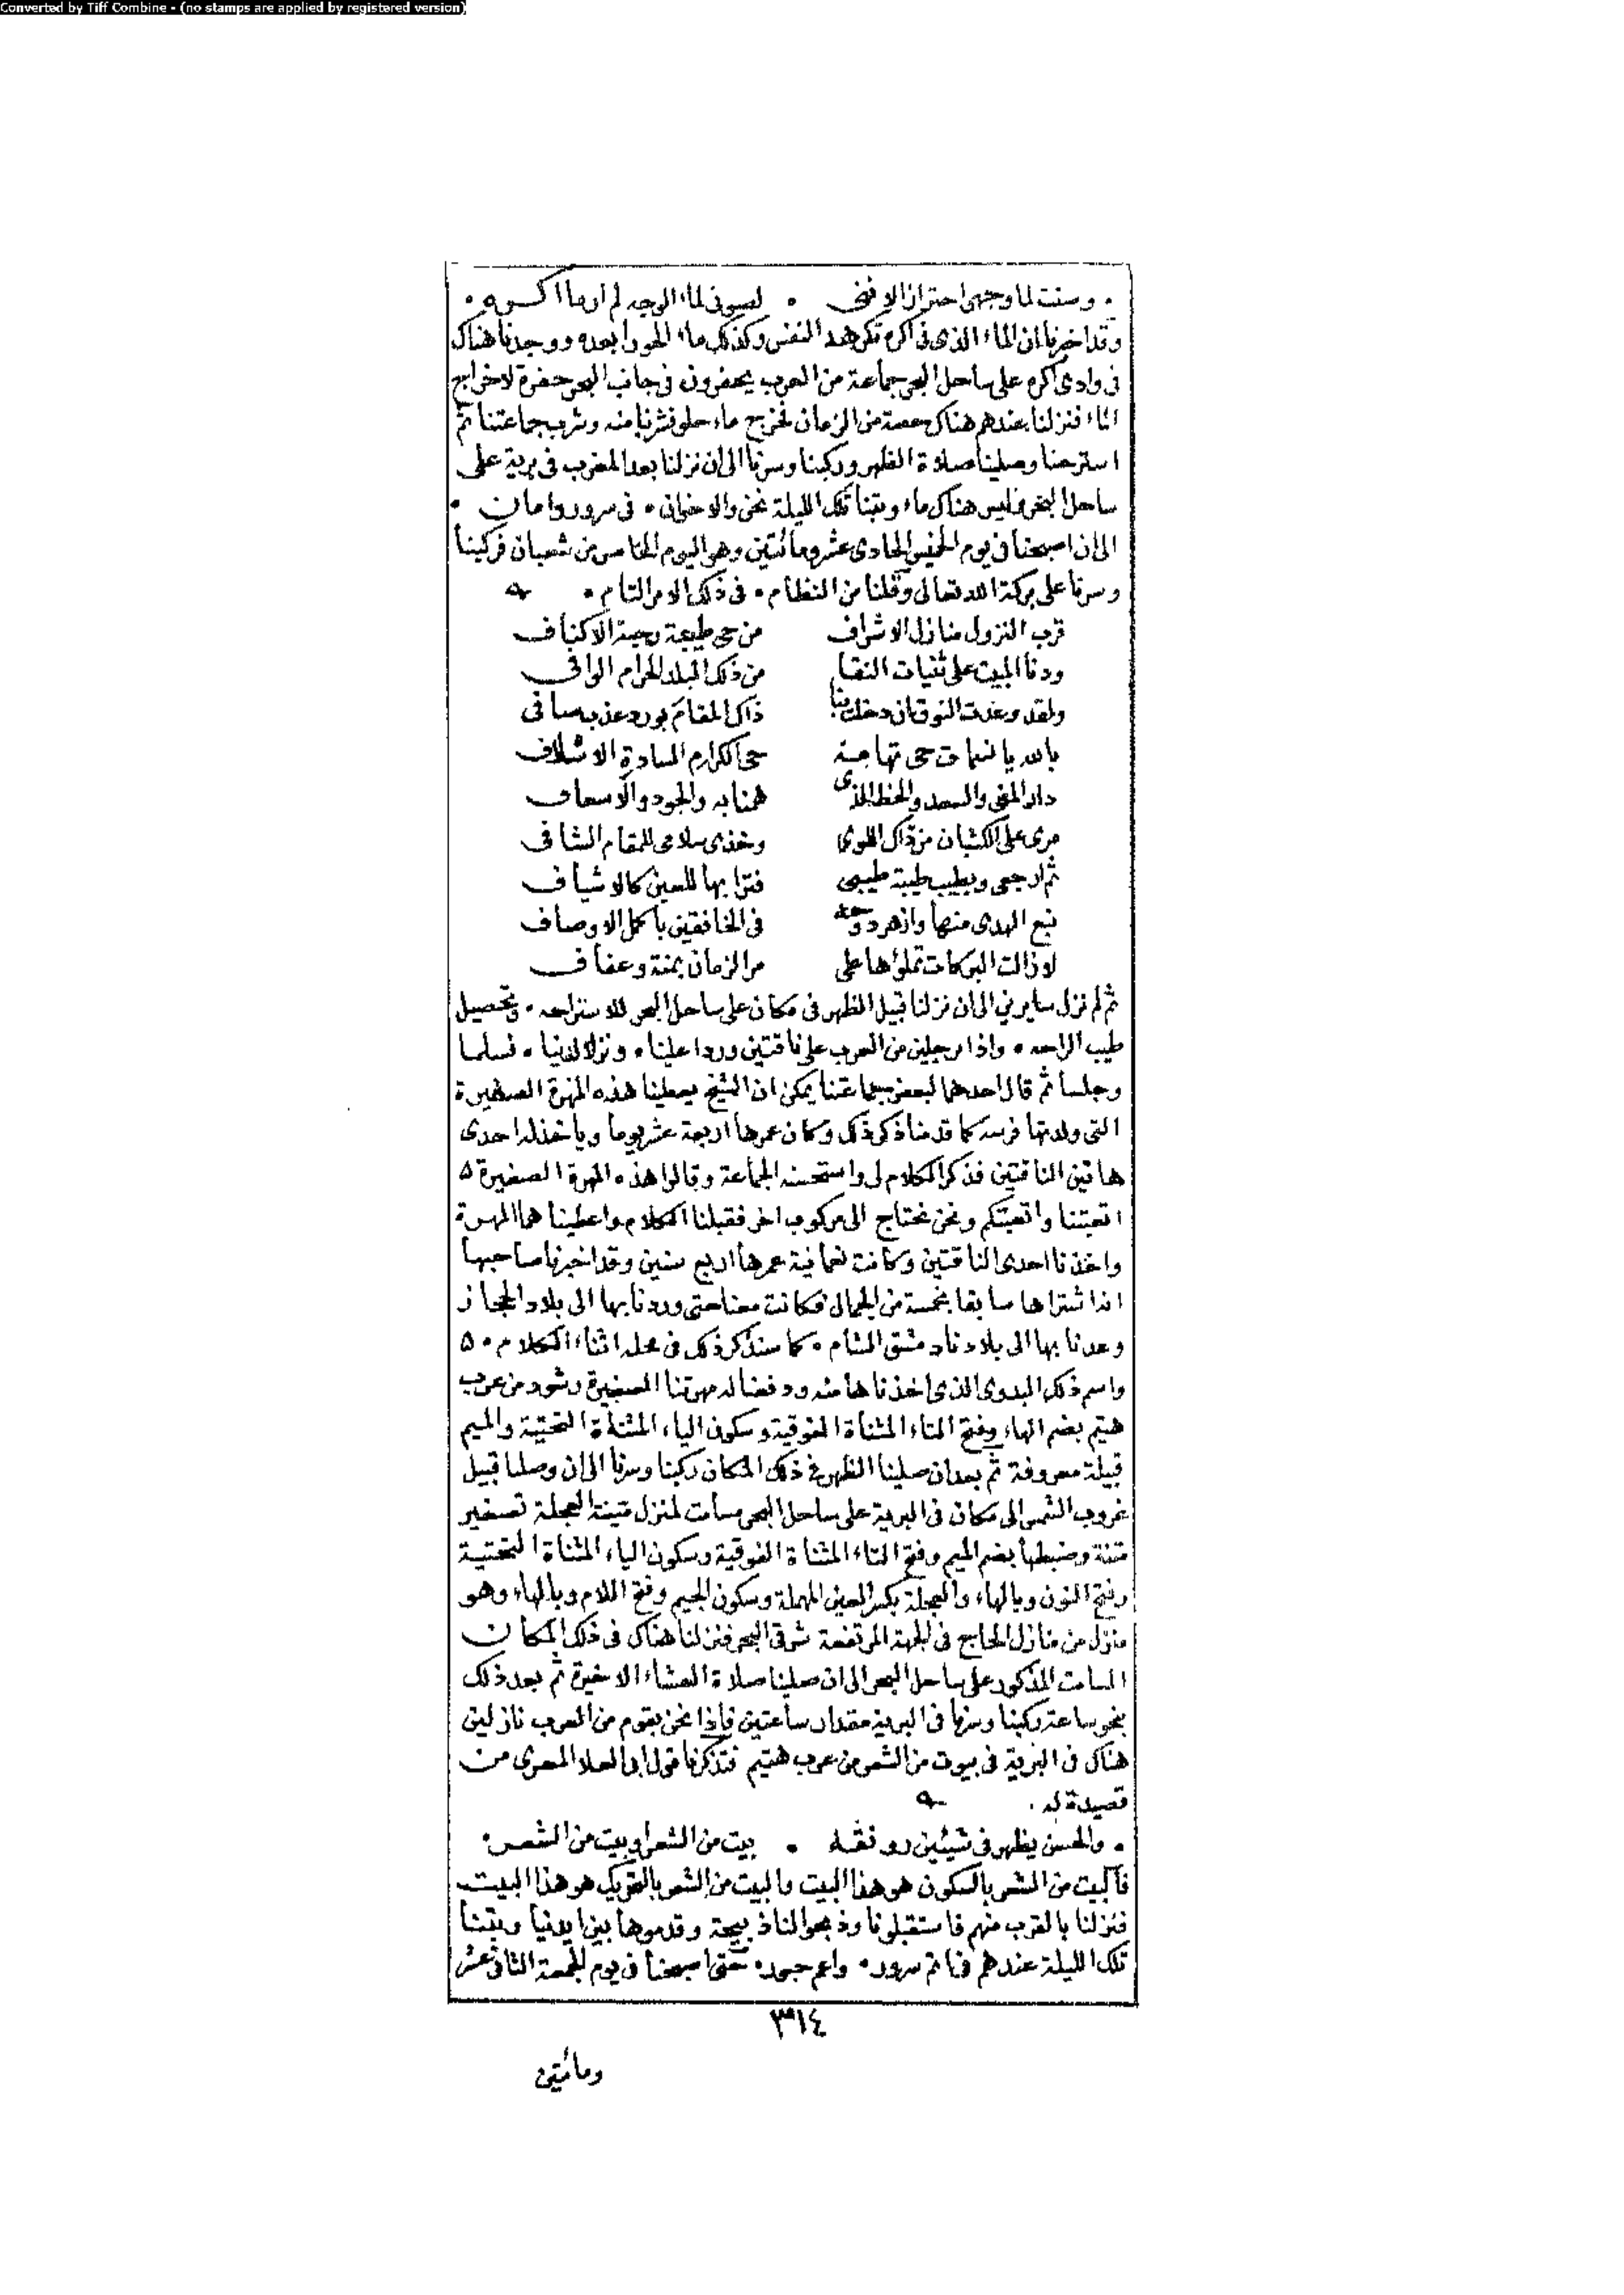 Converted by Tiff Combine - (no stamps are applied by registered version)
وصنت لماوجهى احتراز لاننى • لصونى لماء الوجه لم ار ما اكره •
وقد اخبرنا ان الماء الذى فى اكره تكرهه النفس وكذلك ماء الحورا بعده ووجدنا هناك
فى وادى اكره على ساحل البحر جماعة من العرب يحفرون فى جانب البحر حفرة لاخراج
الماء فنزلنا عندهم هناك حصة من الزمان فخرج ماء حلو فشربنا منه وشرب جماعتنا ثم
استرحنا وصلينا صلاة الظهر وركبنا وسرنا الى ان نزلنا بعد المغرب فى برية على
ساحل البحر وليس هناك ماء وبتنا تلك الليلة نحن والاخوان • فى سرور وامان •
الى ان اصبحنا فى يوم الخميس الحادى عشر ومائتين وهو اليوم الخامس من شعبان فركبنا
وسرنا على بركة الله تعالى وقلنا من النظام • فى ذلك الامر التام •
قرب النزول منازل الاشراف من حى طيبة رحبة الاكناف
ودنا المبيت على ثنيات النقا من ذلك البلد الحرام الوافى
ولقد وعدت النوق ان دخلت بنا ذاك المقام بورد عذب صافى
بالله يا نسمات حى تهامة حى الكرام السادة الاسلاف
دار المنى والسعد والحظ الذى همنا به والجود والاسعاف
مرى على الكثبان من ذاك اللوى وخذى سلامى للمقام الشافى
ثم ارجعى وبطيب طيبة طيبى فترابها للعين كالاشياف
نبع الهدى منها وازهر دوحه فى الخافقين باكمل الاوصاف
لا زالت البركات تملؤها على مر الزمان بمنة وعفاف
ثم لم نزل سايرين الى ان نزلنا قبيل الظهر فى مكان على ساحل البحر للاستراحه • وتحصيل
طيب الراحه • واذا برجلين من العرب على ناقتين وردا علينا • ونزلا لدينا • فسلما
وجلسا ثم قال احدهما لبعض جماعتنا يمكن ان الشيخ يعطينا هذه المهرة الصغيرة
التى ولدتها فرسه كما قدمنا ذكر ذلك وكان عمرها اربعة عشر يوما وياخذ له احدى
هاتين الناقتين فذكر الكلام لى واستحسنه الجماعة وقالوا هذه المهرة الصغيرة ه
اتعبتنا واتعبتكم ونحن نحتاج الى مركوب اخر فقبلنا الكلام واعطيناهما المهرة
واخذنا احدى الناقتين وكانت نعمانية عمرها اربع سنين وقد اخبرنا صاحبها
انه اشتراها سابقا بخمسة من الجمال فكانت معنا حتى وردنا بها الى بلاد الحجاز
وعدنا بها الى بلادنا دمشق الشام • كما سنذكر ذلك فى محله اثناء الكلام • ه
واسم ذلك البدوى الذى اخذناها منه ودفعنا له مهرتنا الصغيرة رشود من عرب
هتيم بضم الهاء وفتح التاء المثناة الفوقية وسكون الياء المثناة التحتية والميم
قبيلة معروفة ثم بعد ان صلينا الظهر فى ذلك المكان ركبنا وسرنا الى ان وصلنا قبيل
غروب الشمس الى مكان فى البرية على ساحل البحر مسامت لمنزل متينة العجلة تصغير
متنة وضبطها بضم الميم وفتح التاء المثناة الفوقية وسكون الياء المثناة التحتية
وفتح النون وبالهاء والعجلة بكسر العين المهملة وسكون الجيم وفتح اللام وبالهاء وهو
منزل من منازل الحاج فى الجهة المرتفعة شرقى البحر فنزلنا هناك فى ذلك المكان
المسامت المذكور على ساحل البحر الى ان صلينا صلاة العشاء الاخيرة ثم بعد ذلك
بنحو ساعة ركبنا وسرنا فى البرية مقدار ساعتين فاذا نحن بقوم من العرب نازلين
هناك فى البرية فى بيوت من الشعر من عرب هتيم فتذكرنا قول ابى العلا المعرى من
قصيدة له •
• والحسن يظهر فى شيئين رونقه • بيت من الشعر او بيت من الشعر •
فالبيت من الشعر بالسكون هو هذا البيت والبيت من الشعر بالتحريك هو هذا البيت
فنزلنا بالقرب منهم فاستقبلونا وذبحوا لنا ذبيحة وقدموها بين ايدينا وبتنا
تلك الليلة عندهم فى اتم سرور • واعم حبور • حتى اصبحنا فى يوم الجمعة الثانى عشر
٣١٤
ومائتين